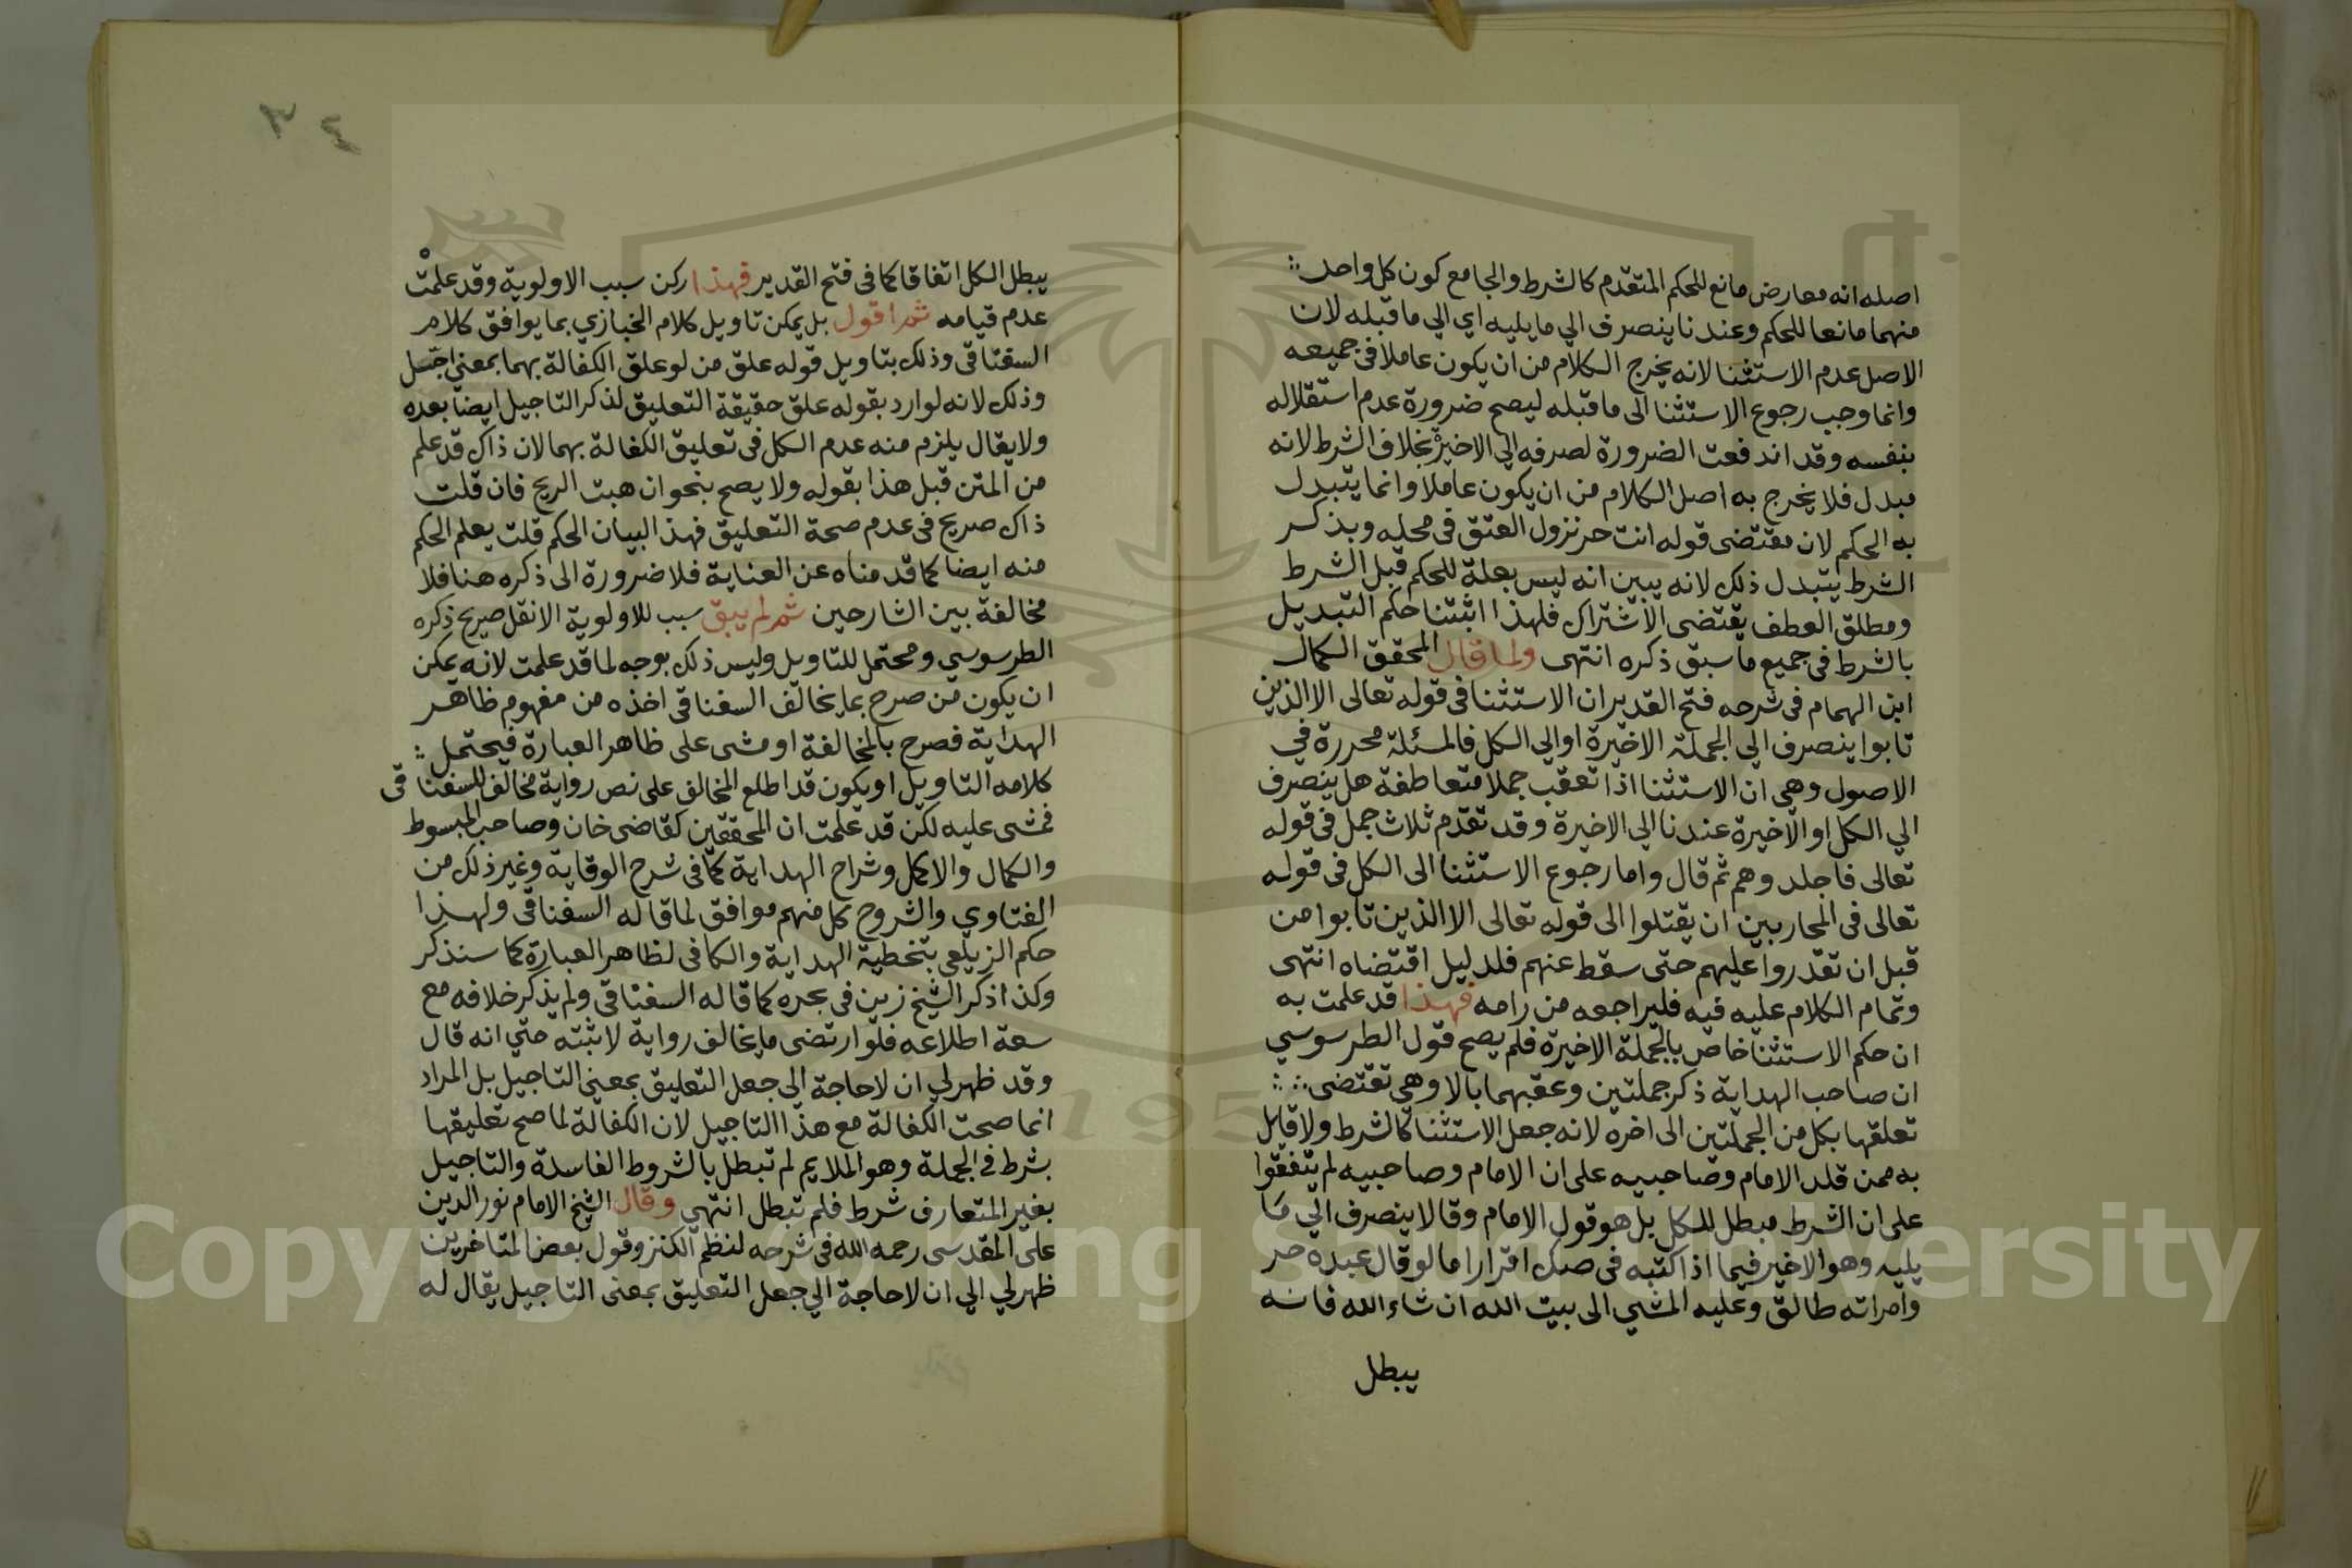 اصله انه معارض مانع للحكم المتقدم كالشرط والجامع كون كل واحد
منهما مانعا للحكم وعندنا ينصرف الي ما يليه اي الي ما قبله لان
الاصل عدم الاستثنا لانه يخرج الكلام من ان يكون عاملا في جميعه
وانما وجب رجوع الاستثنا الى ما قبله ليصح ضرورة عدم استقلاله
بنفسه وقد اندفعت الضرورة لصرفه الي الاخيرة بخلاف الشرط لانه
مبدل فلا يخرج به اصل الكلام من ان يكون عاملا وانما يتبدل
به الحكم لان مقتضى قوله انت حر نزول العتق في محله وبذكر
الشرط يتبدل ذلك لانه يبين انه ليس بعلة للحكم قبل الشرط
ومطلق العطف يقتضى الاشتراك فلهذا اثبتنا حكم التبديل
بالشرط في جميع ما سبق ذكره انتهى ولما قال المحقق الكمال
ابن الهمام في شرحه فتح القدير ان الاستثنا في قوله تعالى الا الذين
تابوا ينصرف الي الجملة الاخيرة او الي الكل فالمسئلة محررة في
الاصول وهي ان الاستثنا اذا تعقب جملا متعاطفة هل ينصرف
الي الكل او الاخيرة عندنا الي الاخيرة وقد تقدم ثلاث جمل في قوله
تعالى فاجلدوهم ثم قال واما رجوع الاستثنا الى الكل في قوله
تعالى في المحاربين ان يقتلوا الى قوله تعالى الا الذين تابوا من
قبل ان تقدروا عليهم حتى سقط عنهم فلدليل اقتضاه انتهى
وتمام الكلام عليه فيه فليراجعه من رامه فهذا قد علمت به
ان حكم الاستثنا خاص بالجملة الاخيرة فلم يصح قول الطرسوسي
ان صاحب الهداية ذكر جملتين وعقبهما بالا وهي تقتضى
تعلقها بكل من الجملتين الى اخره لانه جعل الاستثنا كالشرط ولا قايل
به ممن قلد الامام وصاحبيه على ان الامام وصاحبيه لم يتفقوا
على ان الشرط مبطل للكل بل هو قول الامام وقالا ينصرف الي ما
يليه وهو الاخير فيما اذا كتبه في صك اقرارا ما لو قال عبده حر
وامراته طالق وعليه المشي الى بيت الله ان شاء الله فانه
يبطل
٣٤
يبطل الكل اتفاقا كما في فتح القدير فهذا ركن سبب الاولوية وقد علمت
عدم قيامه ثم اقول بل يمكن تاويل كلام الخبازي بما يوافق كلام
السغناقي وذلك بتاويل قوله علق من لو علق الكفالة بهما بمعنى اجل
وذلك لانه لو ارد بقوله علق حقيقة التعليق لذكر التاجيل ايضا بعده
ولا يقال يلزم منه عدم الكل في تعليق الكفالة بهما لان ذاك قد علم
من المتن قبل هذا بقوله ولا يصح بنحو ان هبت الريح فان قلت
ذاك صريح في عدم صحة التعليق فهذا لبيان الحكم قلت يعلم الحكم
منه ايضا كما قدمناه عن العناية فلا ضرورة الى ذكره هنا فلا
مخالفة بين الشارحين ثم لم يبق سبب للاولوية الا نقل صريح ذكره
الطرسوسي ومحتمل للتاويل وليس ذلك بوجه لما قد علمت لانه يمكن
ان يكون من صرح بما يخالف السغناقي اخذه من مفهوم ظاهر
الهداية فصرح بالمخالفة او مشى على ظاهر العبارة فيحتمل
كلامه التاويل او يكون قد اطلع المخالف على نص رواية مخالف للسغناقي
فمشى عليه لكن قد علمت ان المحققين كقاضى خان وصاحب المبسوط
والكمال والاكمل وشراح الهداية كما في شرح الوقاية وغير ذلك من
الفتاوي والشروح كل منهم موافق لما قاله السغناقي ولهذا
حكم الزيلعي بتخطية الهداية والكافي لظاهر العبارة كما سنذكر
وكذا ذكر الشيخ زين في بحره كما قاله السغناقي ولم يذكر خلافه مع
سعة اطلاعه فلو ارتضى ما يخالف رواية لاثبته حتي انه قال
وقد ظهر لي ان لا حاجة الي جعل التعليق بمعنى التاجيل بل المراد
انما صحت الكفالة مع هذا التاجيل لان الكفالة لما صح تعليقها
بشرط في الجملة وهو الملايم لم تبطل بالشروط الفاسدة والتاجيل
بغير المتعارف شرط فلم تبطل انتهى وقال الشيخ الامام نور الدين
على المقدسى رحمه الله في شرحه لنظم الكنز وقول بعض المتاخرين
ظهر لي الي ان لا حاجة الي جعل التعليق بمعنى التاجيل يقال له
Copyright © King Saud University
195